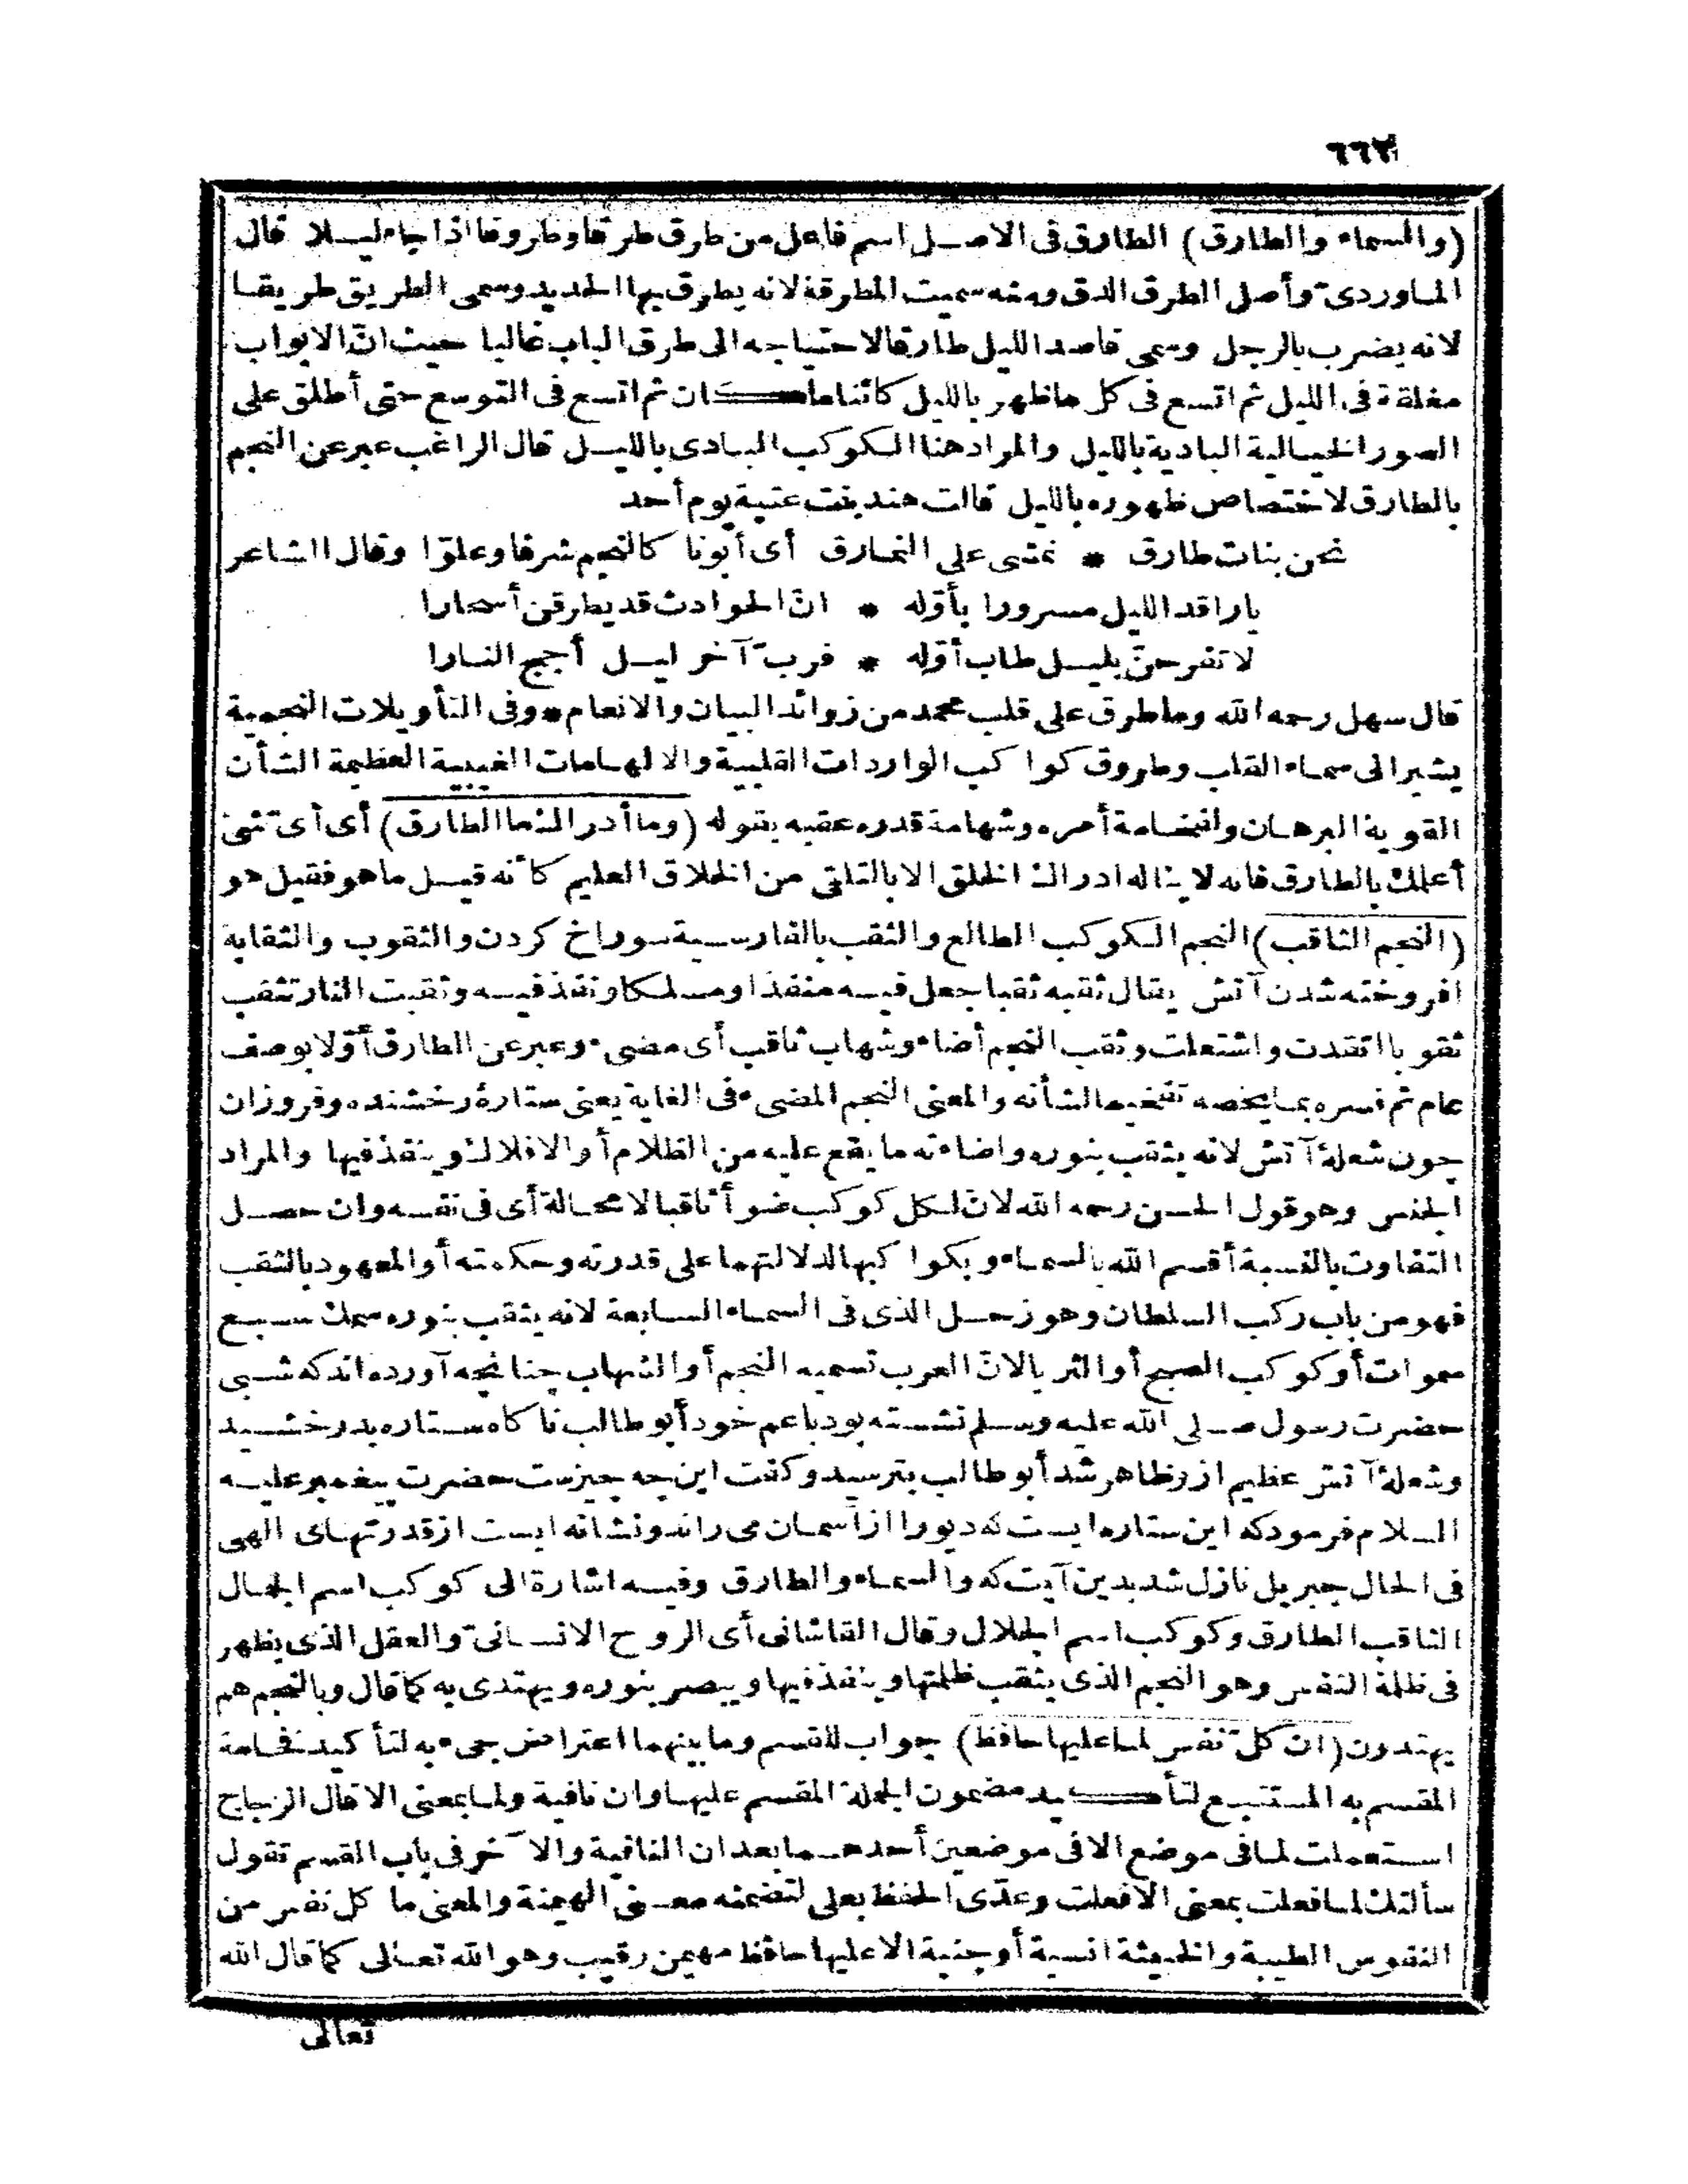 ٦٦٢
(والسماء والطارق) الطارق فى الاصل اسم فاعل من طرق طرقا وطروقا اذا جاء ليلا قال
الماوردى وأصل الطرق الدق ومنه سميت المطرقة لانه يطرق بها الحديد وسمى الطريق طريقا
لانه يضرب بالرجل وسمى قاصد الليل طارقا لاحتياجه الى طرق الباب غالبا حيث انّ الابواب
مغلقة فى الليل ثم اتسع فى كل ما ظهر بالليل كائنا ما كان ثم اتسع فى التوسع حتى أطلق على
الصور الخيالية البادية بالليل والمراد هنا الكوكب البادى بالليل قال الراغب عبر عن النجم
بالطارق لاختصاص ظهوره بالليل قالت هند بنت عتبة يوم أحد
نحن بنات طارق * نمشى على النمارق أى أبونا كالنجم شرفا وعلوّا وقال الشاعر
يا راقد الليل مسرورا بأوّله * انّ الحوادث قد يطرقن أسحارا
لا تفرحنّ بليل طاب أوّله * فربّ آخر ليل أجج النارا
قال سهل رحمه الله وما طرق على قلب محمد من زوائد البيان والانعام * وفى التأويلات النجمية
يشير الى سماء القلب وطروق كواكب الواردات القلبية والالهامات الغيبية العظيمة الشأن
القوية البرهان ولفخامة أمره وشهامة قدره عقبه بقوله (وما أدراك ما الطارق) أى أىّ شئ
أعلمك بالطارق فانه لا يناله ادراك الخلق الا بالتلقى من الخلاق العليم كأنه قيل ما هو فقيل هو
(النجم الثاقب) النجم الكوكب الطالع والثقب بالفارسية سوراخ كردن والثقوب والثقابة
افروخته شدن آتش يقال ثقبه ثقبا جعل فيه منفذا ومسلكا ونفذ فيه وثقبت النار تثقب
ثقوبا اتقدت واشتعلت وثقب النجم أضاء وشهاب ثاقب أى مضىء وعبر عن الطارق أوّلا بوصف
عام ثم فسره بما يخصه تفخيما لشأنه والمعنى النجم المضىء فى الغاية يعنى ستارهٔ رخشنده وفروزان
چون شعلهٔ آتش لانه يثقب بنوره واضاءته ما يقع عليه من الظلام أو الافلاك وينفذ فيها والمراد
الجنس وهو قول الحسن رحمه الله لانّ لكل كوكب ضوأ ثاقبا لا محالة أى فى نفسه وان حصل
التفاوت بالنسبة أقسم الله بالسماء وبكواكبها لدلالتهما على قدرته وحكمته أو المعهود بالثقب
فهو من باب ركب السلطان وهو زحل الذى فى السماء السابعة لانه يثقب بنوره سمك سبع
سموات أو كوكب الصبح أو الثريا لانّ العرب تسميه النجم أو الشهاب چنانچه آورده اند كه شبى
حضرت رسول صلى الله عليه وسلم نشسته بود با عم خود أبو طالب ناكاه ستاره بدرخشيد
وشعلهٔ آتش عظيم از ر ظاهر شد أبو طالب بترسيد وكفت اين چه چيزست حضرت پيغمبر عليه
السلام فرمود كه اين ستاره ايست كه ديو را از آسمان مى راند ونشانه ايست از قدرتهاى الهى
فى الحال جبريل نازل شد بدين آيت كه والسماء والطارق وفيه اشارة الى كوكب اسم الجمال
الثاقب الطارق وكوكب اسم الجلال وقال القاشانى أى الروح الانسانىّ والعقل الذى يظهر
فى ظلمة النفس وهو النجم الذى يثقب ظلمتها وينفذ فيها ويبصر بنوره ويهتدى به كما قال وبالنجم هم
يهتدون (ان كلّ نفس لما عليها حافظ) جواب للقسم وما بينهما اعتراض جىء به لتأكيد فخامة
المقسم به المستتبع لتأكيد مضمون الجملة المقسم عليها وان نافية ولما بمعنى الا قال الزجاج
استعملت لما فى موضع الا فى موضعين أحدهما بعد ان النافية والآخر فى باب القسم تقول
سألتك لما فعلت بمعنى الا فعلت وعدّى الحفظ بعلى لتضمنه معنى الهيمنة والمعنى ما كل نفس من
النفوس الطيبة والخبيثة انسية أو جنية الا عليها حافظ مهيمن رقيب وهو الله تعالى كما قال الله
تعالى